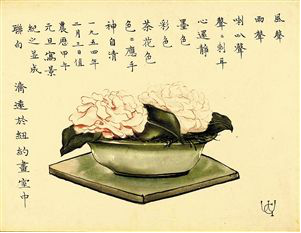 風聲
雨聲
喇叭聲
聲聲刺耳
心還靜
墨色
彩色
茶花色
色色應手
神自清
一九五四年
二月三日值
農曆甲午
元旦寫景
紀之並成
聯句
濟遠於紐約畫室中